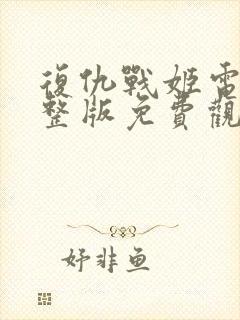 復仇戰姬電
整版免費觀
好非鱼